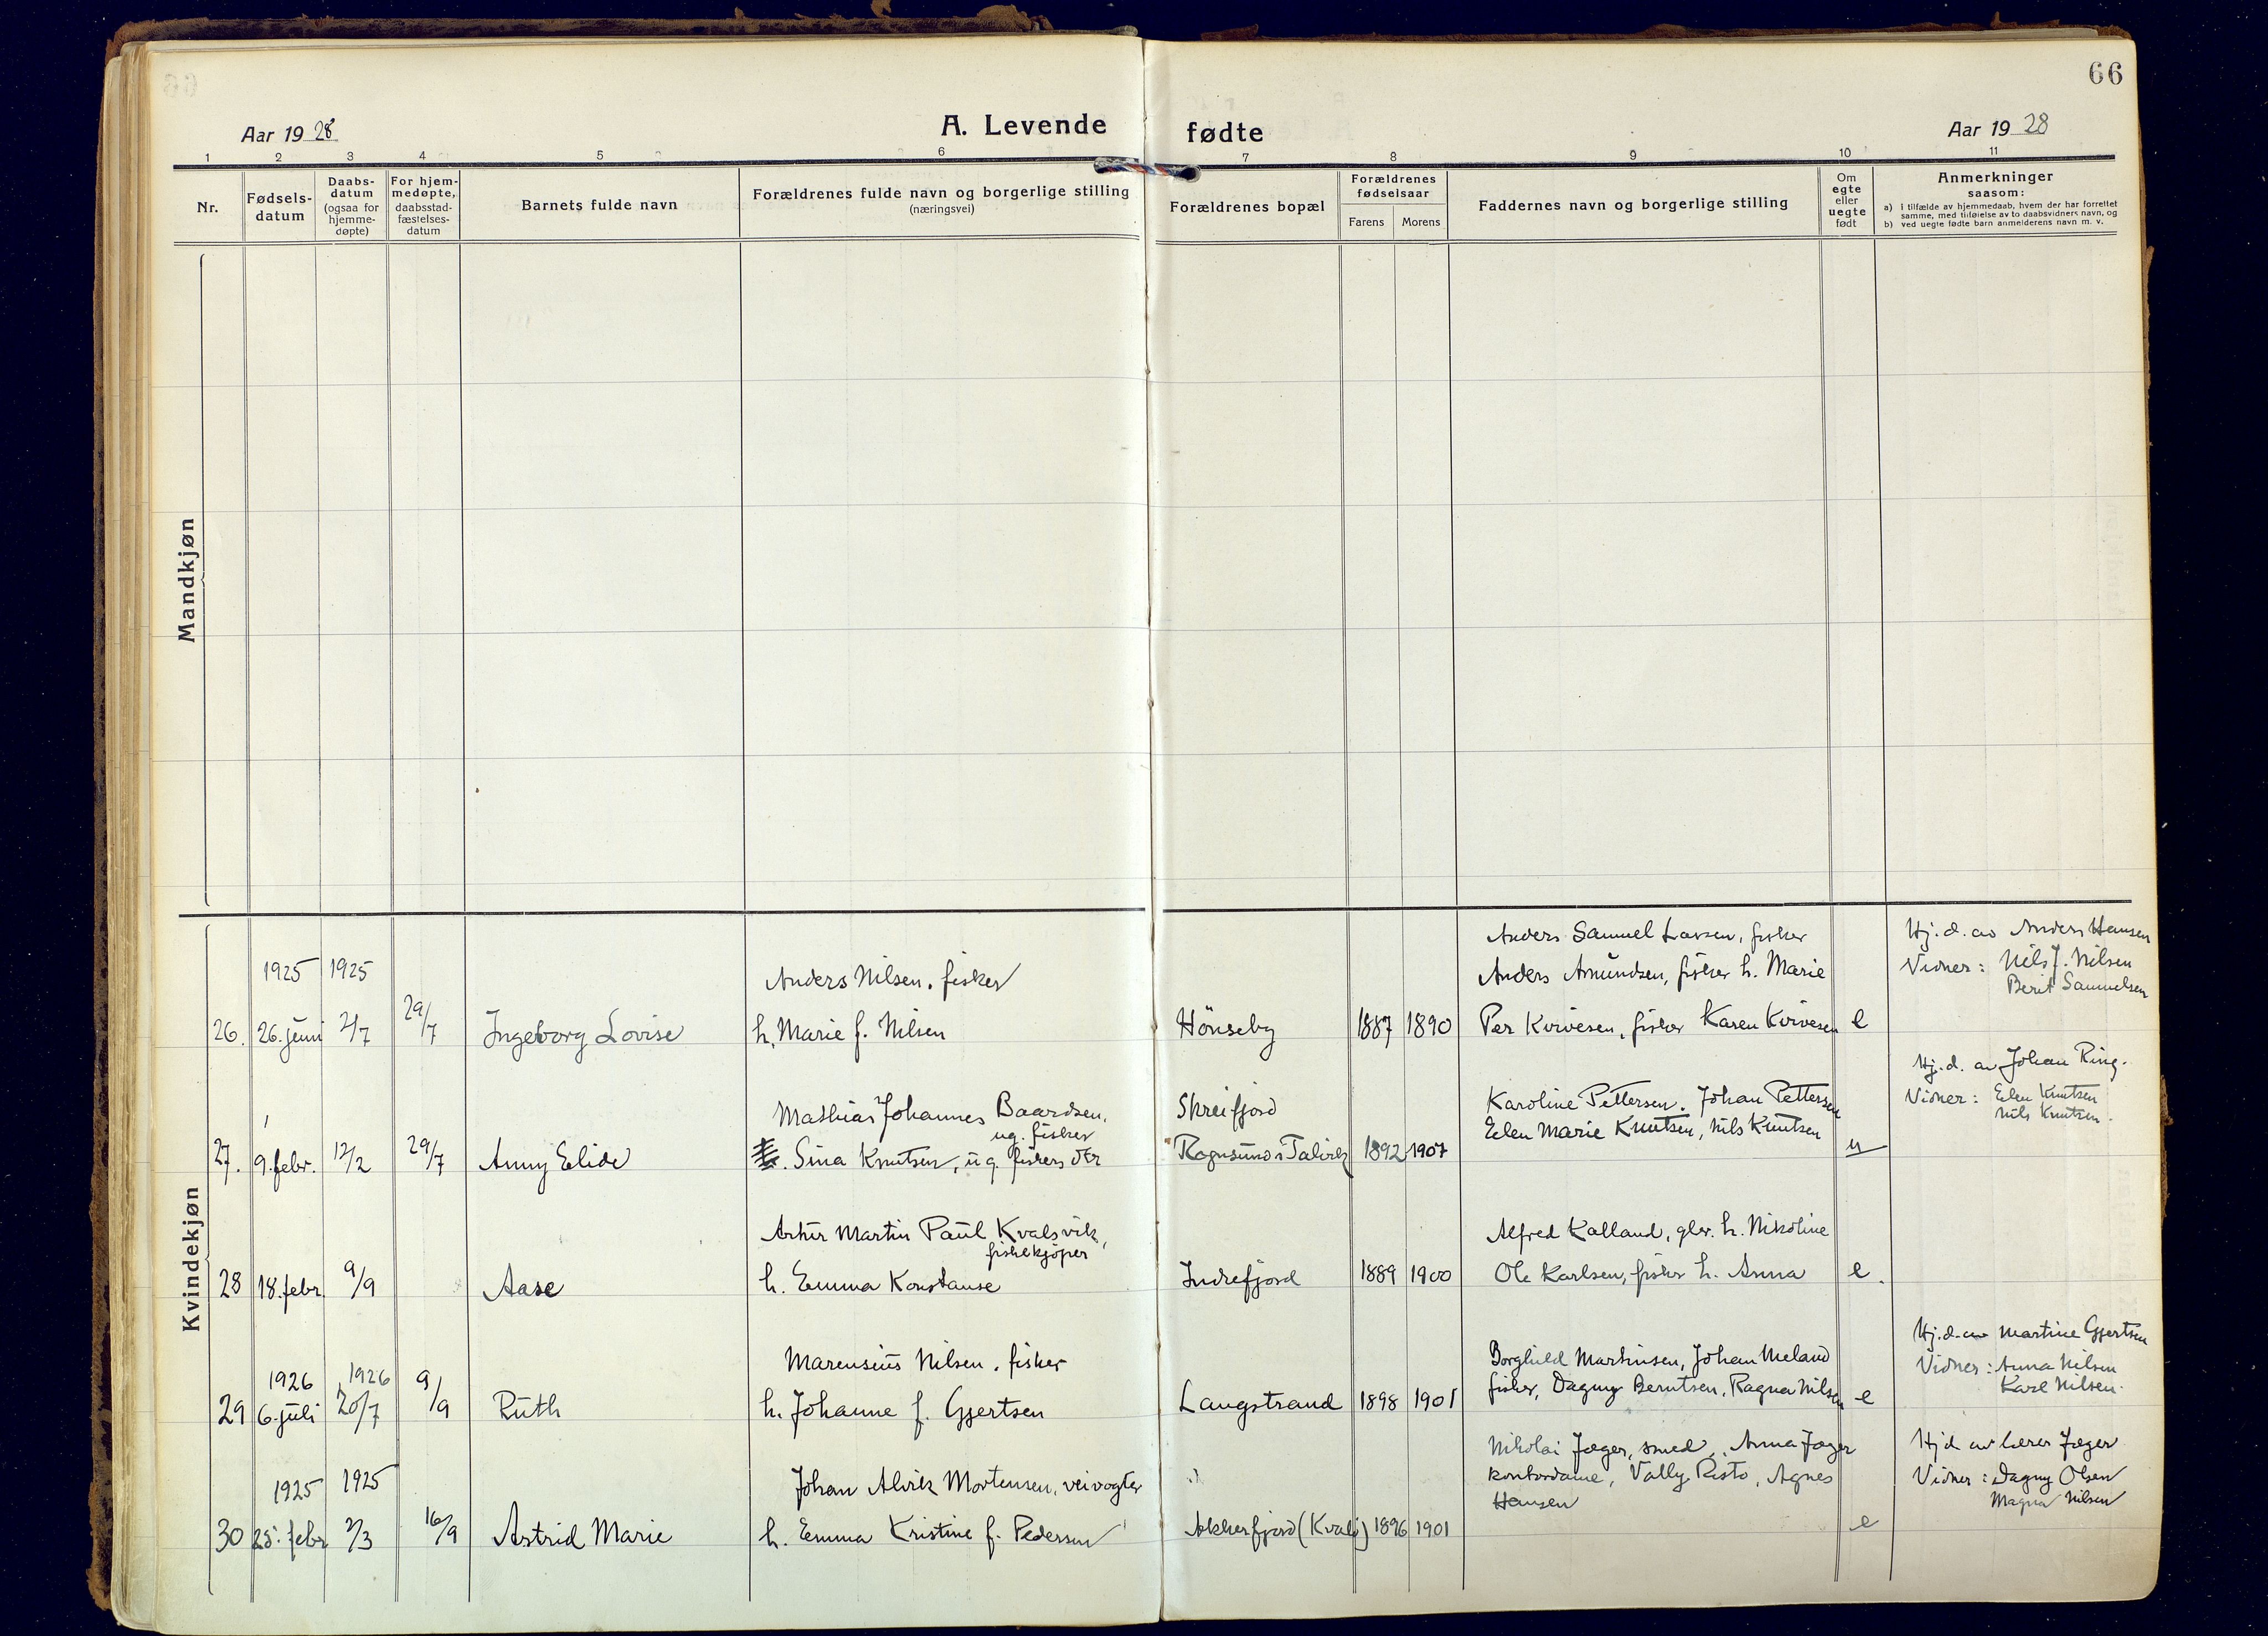 66
Aar 1928
A. Levende
fødte
Aar 1928
1 2 3 4 5 6 7 8 9 10 11
Nr.
Fødsels-
datum
Daabs-
datum
(ogsaa for
hjemme-
døpte)
For hjem-
medøpte,
daabsstad-
fæstelses-
datum
Barnets fulde navn
Forældrenes fulde navn og borgerlige stilling
(næringsvei)
Forældrenes bopæl
Forældrenes
fødselsaar
Farens Morens
Faddernes navn og borgerlige stilling
Om
egte
eller
uegte
født
Anmerkninger
saasom:
a) i tilfælde av hjemmedaab, hvem der har forrettet
samme, med tilføielse av to daabsvidners navn, og
b) ved uegte fødte barn anmelderens navn m. v.
Mandkjøn
Kvindekjøn
1925 1925
26. 26. juni 2/7 29/7 Ingeborg Lovise
Anders Nilsen, fisker
h. Marie f. Nilsen
Hönseby 1887 1890
Anders Samuel Larsen, fisker
Anders Amundsen, fisker h. Marie
Per Kvivesen, fisker Karen Kvivesen
e
Hj. d. av Anders Hansen
Vidner: Nils J. Nilsen
Berit Samuelsen
27. 9. febr. 12/2 29/7 Anny Elide
Mathias Johannes Baardsen,
ug. fisker
Sina Knutsen, ug. fiskers dtr
Skreifjord
Rognsund i Talvik 1892 1907
Karoline Pettersen, Johan Pettersen
Elen Marie Knutsen, Nils Knutsen
u
Hj. d. av Johan Ring.
Vidner: Elen Knutsen
Nils Knutsen.
28 18. febr. 9/9 Aase
Artur Martin Paul Kvalsvik,
fiskekjöper
h. Emma Konstanse
Indrefjord 1889 1900
Alfred Kalland, glr. h. Nikoline
Ole Karlsen, fisker h. Anna
e.
1926 1926
29 6. juli 20/7 9/9 Ruth
Marensius Nilsen, fisker
h. Johanne f. Gjertsen
Langstrand 1898 1901
Borghild Martinsen, Johan Meland
fisker, Dagmy Berntsen, Ragna Nilsen
e
Hj. d. av Martine Gjertsen
Vidner: Anna Nilsen
Karl Nilsen.
1925 1925
30 25. febr 2/3 16/9 Astrid Marie
Johan Alvik Mortensen, veivogter
h. Emma Kristine f. Pedersen
Akkerfjord (Kvalö) 1896 1901
Nikolai Jæger, smed, Anna Jæger
kontordame, Vally Risto, Agnes
Hansen
e
Hj d av lærer Jæger
Vidner: Dagny Olsen
Magna Nilsen